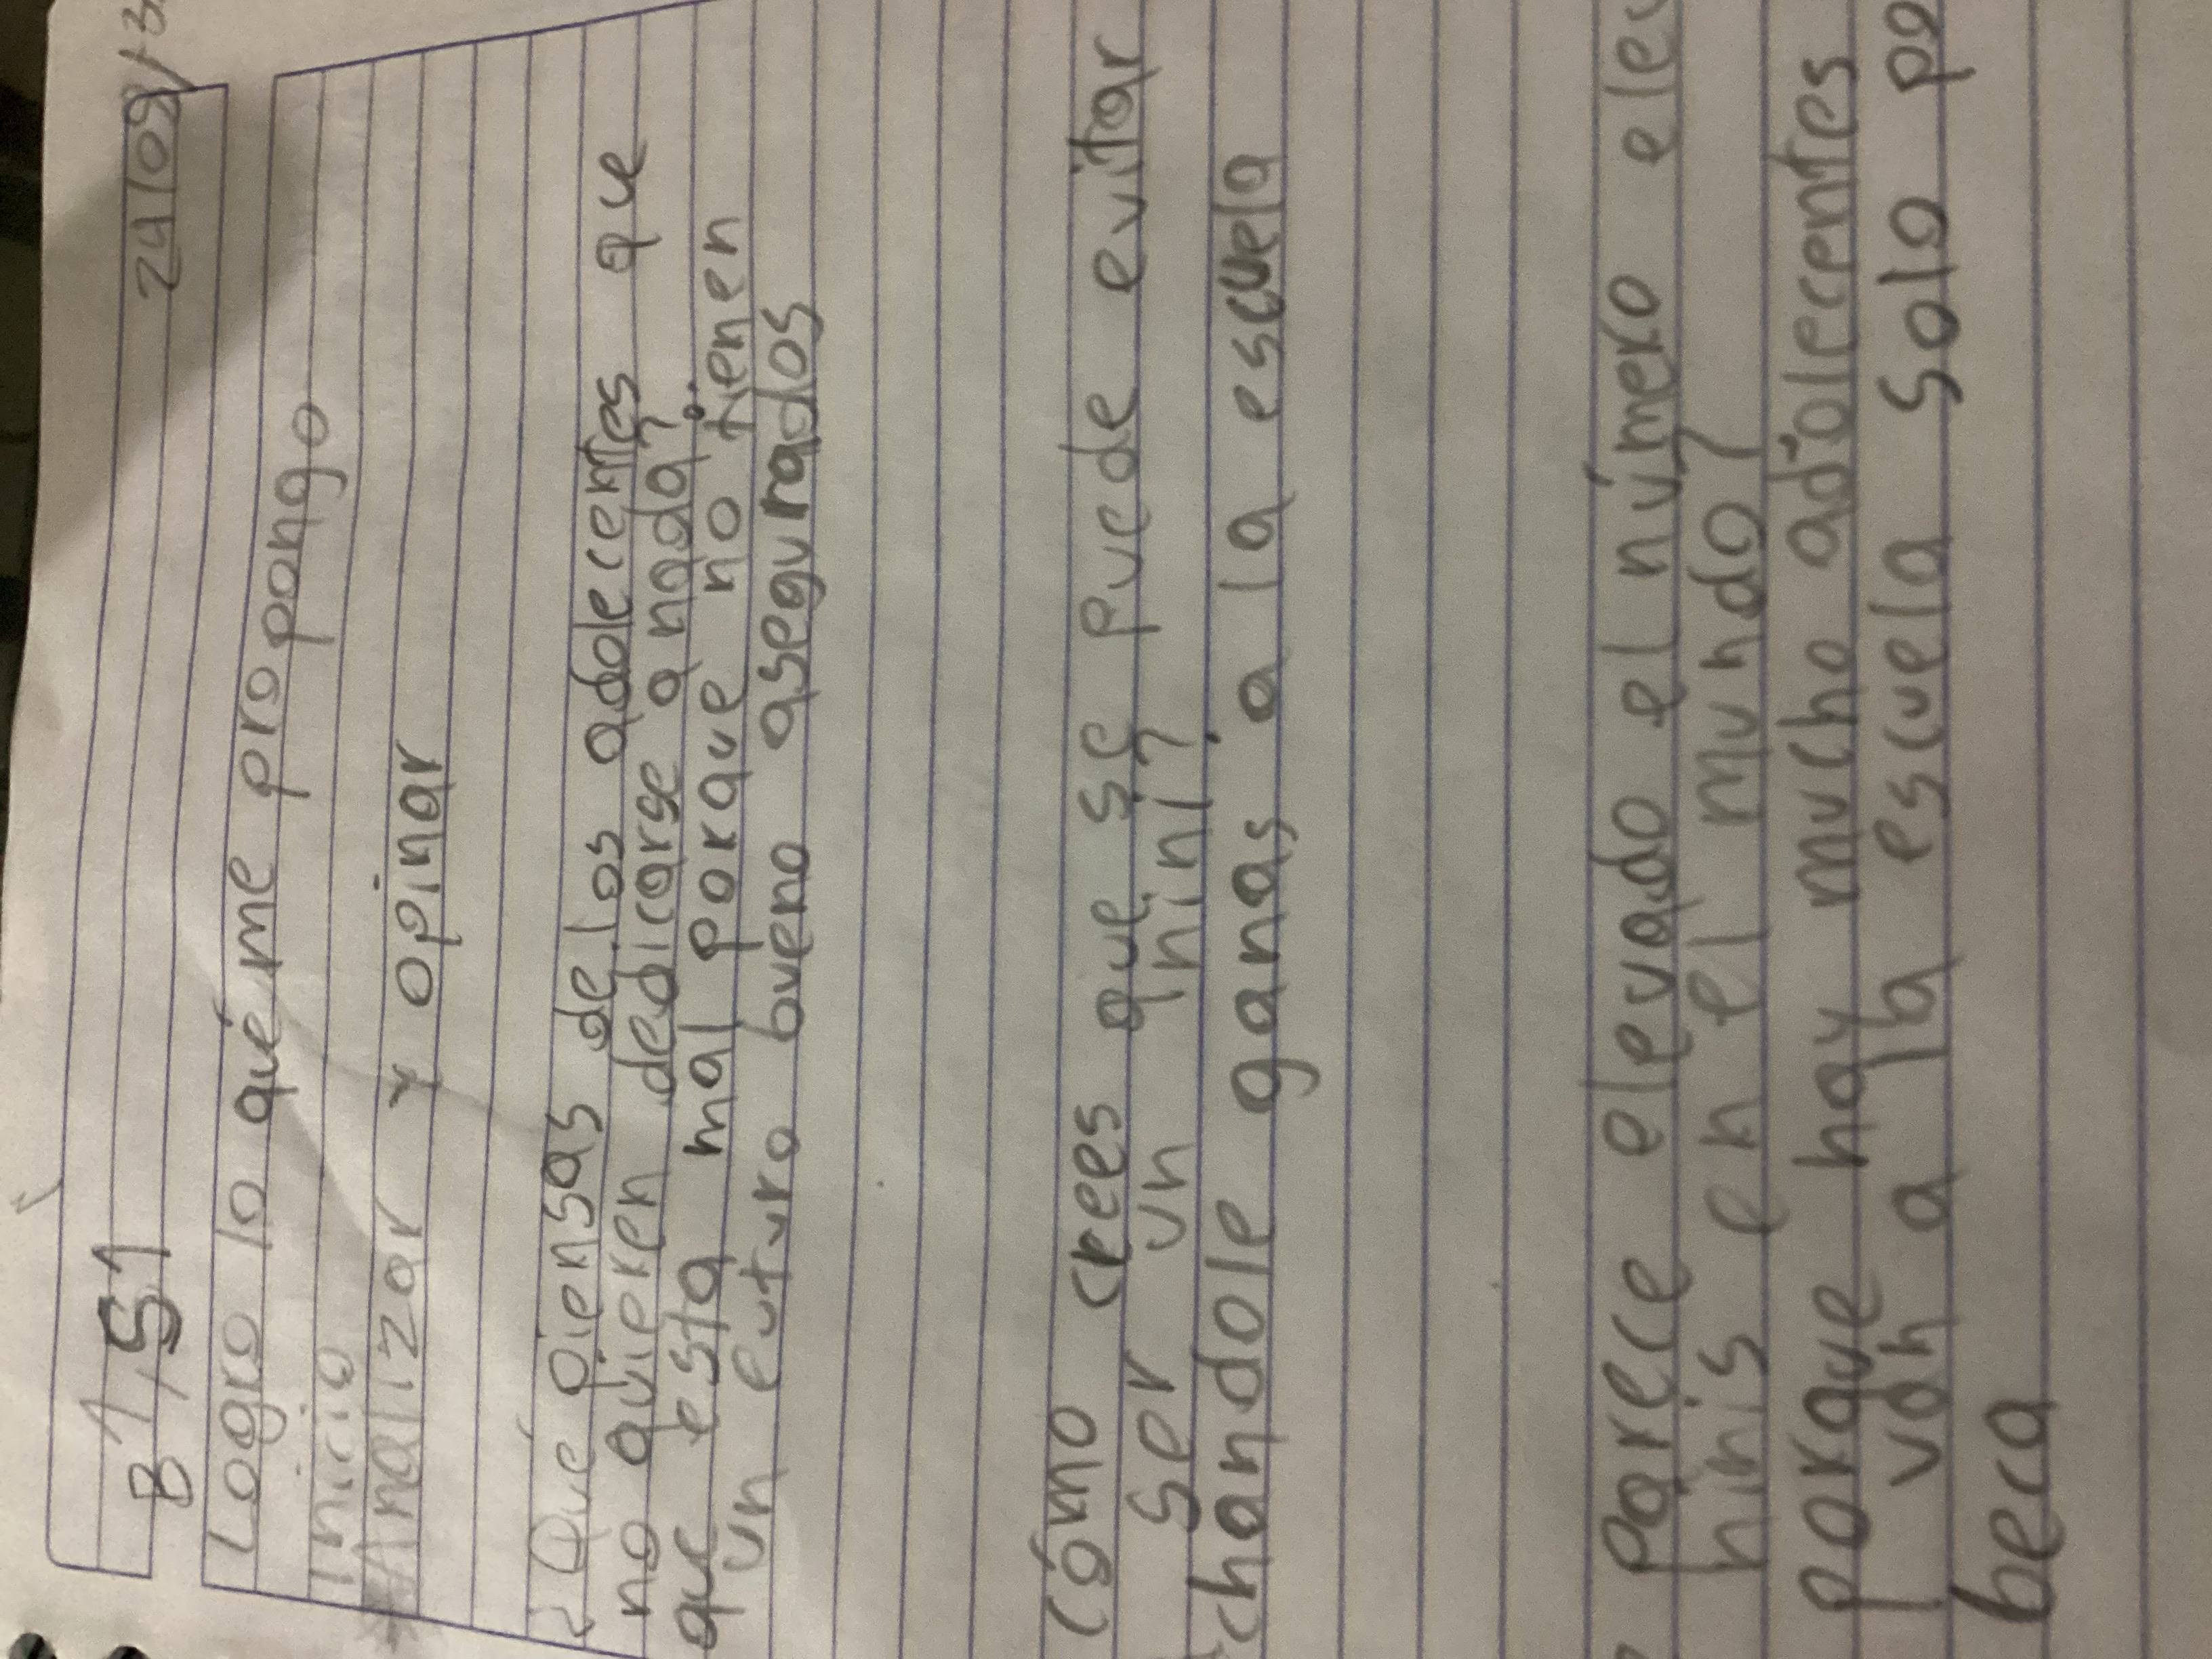 B1,S1 24/09/13
Logro lo qué me propongo
Inicio
*Analizar y opinar
¿Qué piensas de los adolecentes que
no quieren dedicarse a nada?
que esta mal porque no tienen
un euturo bueno asegurados
Cómo crees que se puede evitar
ser un nini?
chandole ganas a la escuela
Parece elevado el número
ninis en el mundo?
porque hay mucho adolecentes
van a la escuela solo
beca